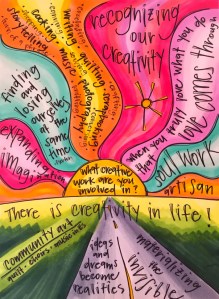 recognizing our
creativity
story-telling
cooking
writing
music
quilting
photography
scrapbooking
finding
and
losing
ourselves
at the
same
time
expanding
imagination
when you truly love what you do
that
love comes through
soul work
artisan
What creative
work are you
involved in?
There is creativity in life!
community art
ideas
and
dreams
become
realities
materializing
the
invisible